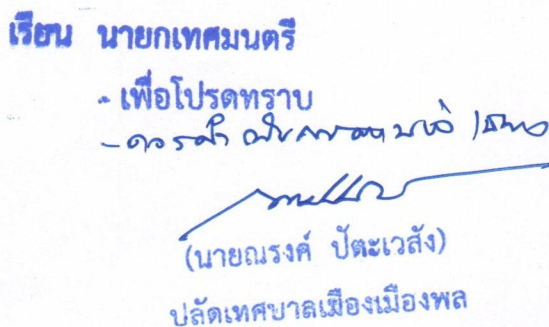 เรียน นายกเทศมนตรี
- เพื่อโปรดทราบ
- ควร
(นายณรงค์ ปัตะเวสัง)
ปลัดเทศบาลเมืองเมืองพล